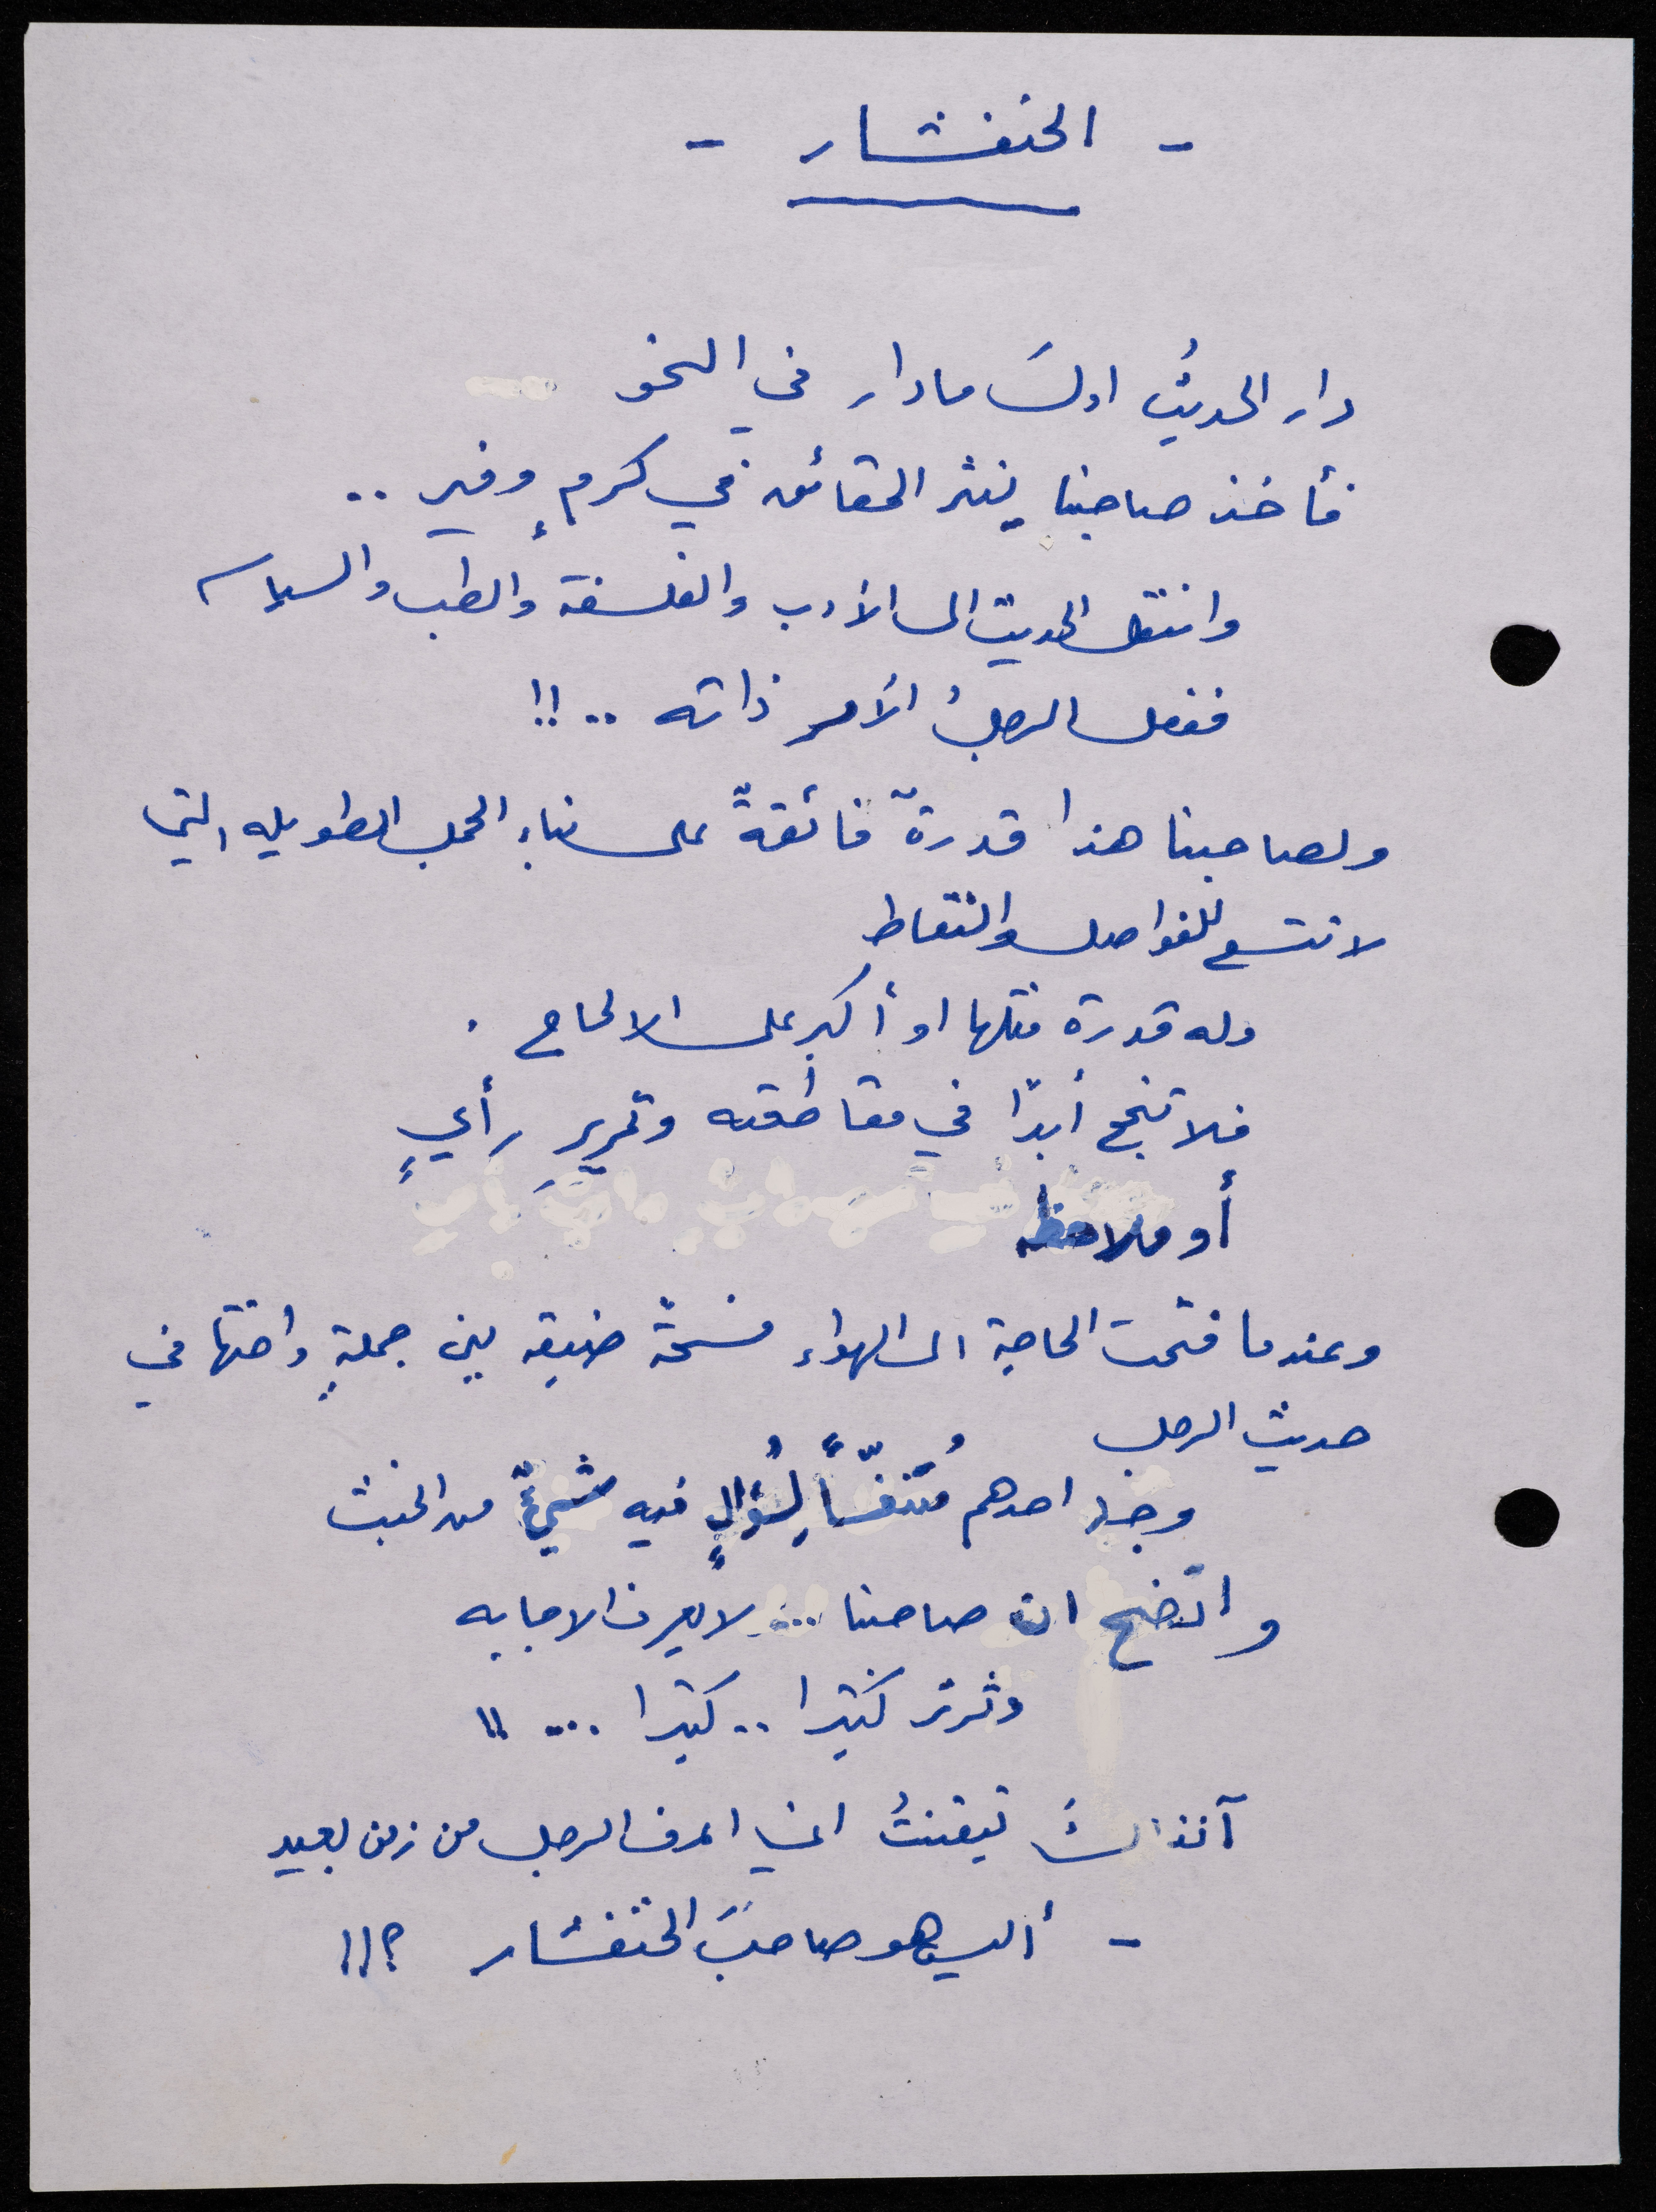 - الخنفشار -
دار الحديثُ اولَ ما دار في النحو
فأخذ صاحبنا ينثر الحقائق في كرمٍ وفير ..
وانتقل الحديث الى الأدب والفلسفة والطب والسياسه
ففعل الرجلُ الأمر ذاته ..!!
ولصاحبنا هذا قدرةً فائقةً على بناء الجمل الطويله التي
لا تتسع للفواصل والنقاط
وله قدرة مثلها او أكبر على الالحاح .
فلا تنجح أبدًا في مقاطعته وتمريرِ رأيٍ
أو ملاحظه
وعندما فتحت الحاجة الى الهواء فسحةً ضيقه بين جملةٍ واختها في
حديث الرجل
وجد احدهم مُتنفّساً لِسُؤالٍ فيه شيءٌ من الخبث
واتضح ان صاحبنا ... لا يعرف الاجابه
وثرثر كثيرا .. كثيرا ... !!
آنذاكَ تيقنتُ اني اعرف الرجل من زمن بعيد
- أليس هو صاحبَ الخنفشار ؟!!